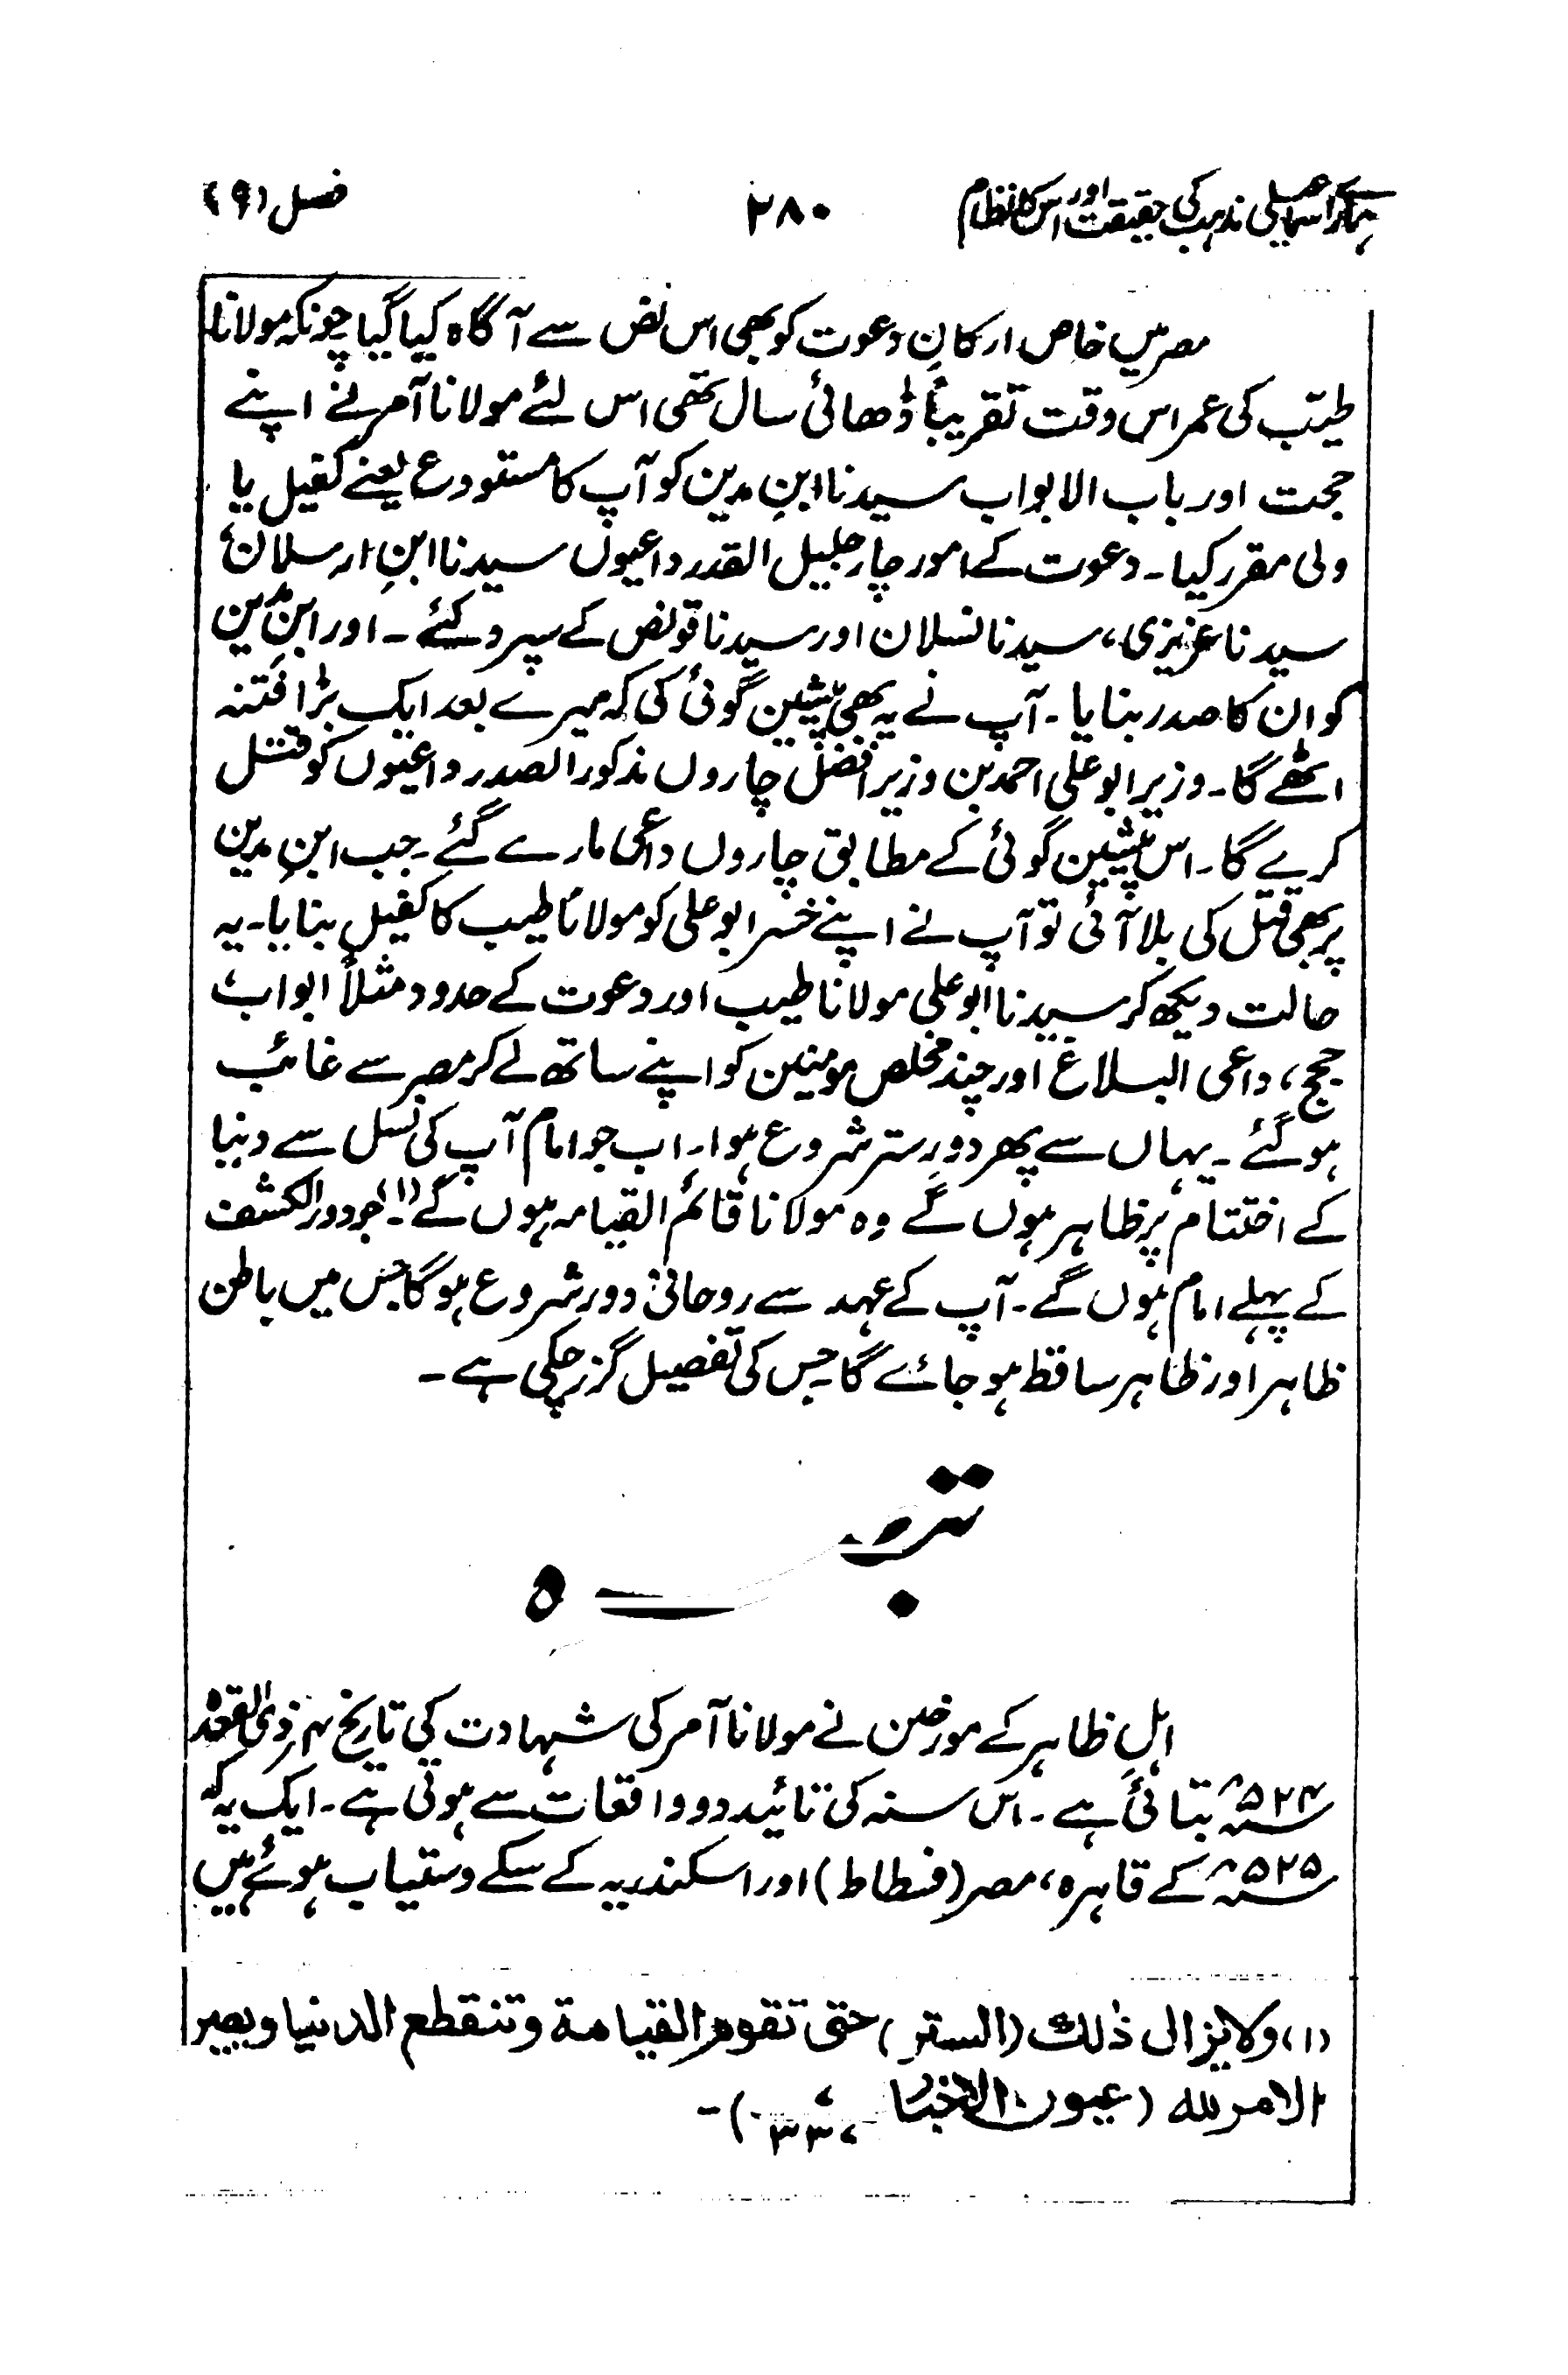 ہمارے اسماعیلی مذہب کی حقیقت اور اس کا نظام ۲۸۰ فصل (۹)
مصر میں خاص ارکانِ دعوت کو بھی اس نص سے آگاہ کیا گیا چونکہ مولانا
طیّب کی عمر اس وقت تقریباً ڈھائی سال تھی اس لئے مولانا آمر نے اپنے
حجت اور باب الابواب سیدنا ابنِ مدین کو آپ کا مستودع یعنے کفیل یا
ولی مقرر کیا۔ دعوت کے امور چار جلیل القدر داعیوں سیدنا ابنِ ارسلان،
سیدنا عزیزی، سیدنا نسلان اور سیدنا قونص کے سپرد کئے۔ اور ابنِ مدین
کو ان کا صدر بنایا۔ آپ نے یہ بھی پیشین گوئی کی کہ میرے بعد ایک بڑا فتنہ
اٹھے گا۔ وزیر ابو علی احمد بن وزیر افضل چاروں مذکور الصدر داعیوں کو قتل
کرے گا۔ اس پیشین گوئی کے مطابق چاروں داعی مارے گئے۔ جب ابنِ مدین
پر بھی قتل کی بلا آئی تو آپ نے اپنے خسر ابو علی کو مولانا طیب کا کفیل بنایا۔ یہ
حالت دیکھ کر سیدنا ابو علی مولانا طیب اور دعوت کے حدود مثلاً ابواب،
حجج، داعی البلاغ اور چند مخلص مومنین کو اپنے ساتھ لے کر مصر سے غائب
ہو گئے۔ یہاں سے پھر دورِ ستر شروع ہوا۔ اب جو امام آپ کی نسل سے دنیا
کے اختتام پر ظاہر ہوں گے وہ مولانا قائم القیامہ ہوں گے (۱)۔ جو دور الکشف
کے پہلے امام ہوں گے۔ آپ کے عہد سے روحانی دور شروع ہو گا جس میں باطن
ظاہر اور ظاہر ساقط ہو جائے گا جس کی تفصیل گزر چکی ہے۔
تبصرہ
اہلِ ظاہر کے مورخین نے مولانا آمر کی شہادت کی تاریخ ۴؍ ذی القعدہ
سنہ ۵۲۴ھ بتائی ہے۔ اس سنہ کی تائید دو واقعات سے ہوتی ہے۔ ایک یہ کہ
سنہ ۵۲۵ھ کے قاہرہ، مصر (فسطاط) اور اسکندریہ کے سکے دستیاب ہوئے ہیں
(۱) ولا یزال ذلك (الستر) حتی تقوم القیامة وتنقطع الدنیا ویصیر
الامر لله (عیون الاخبار )۔